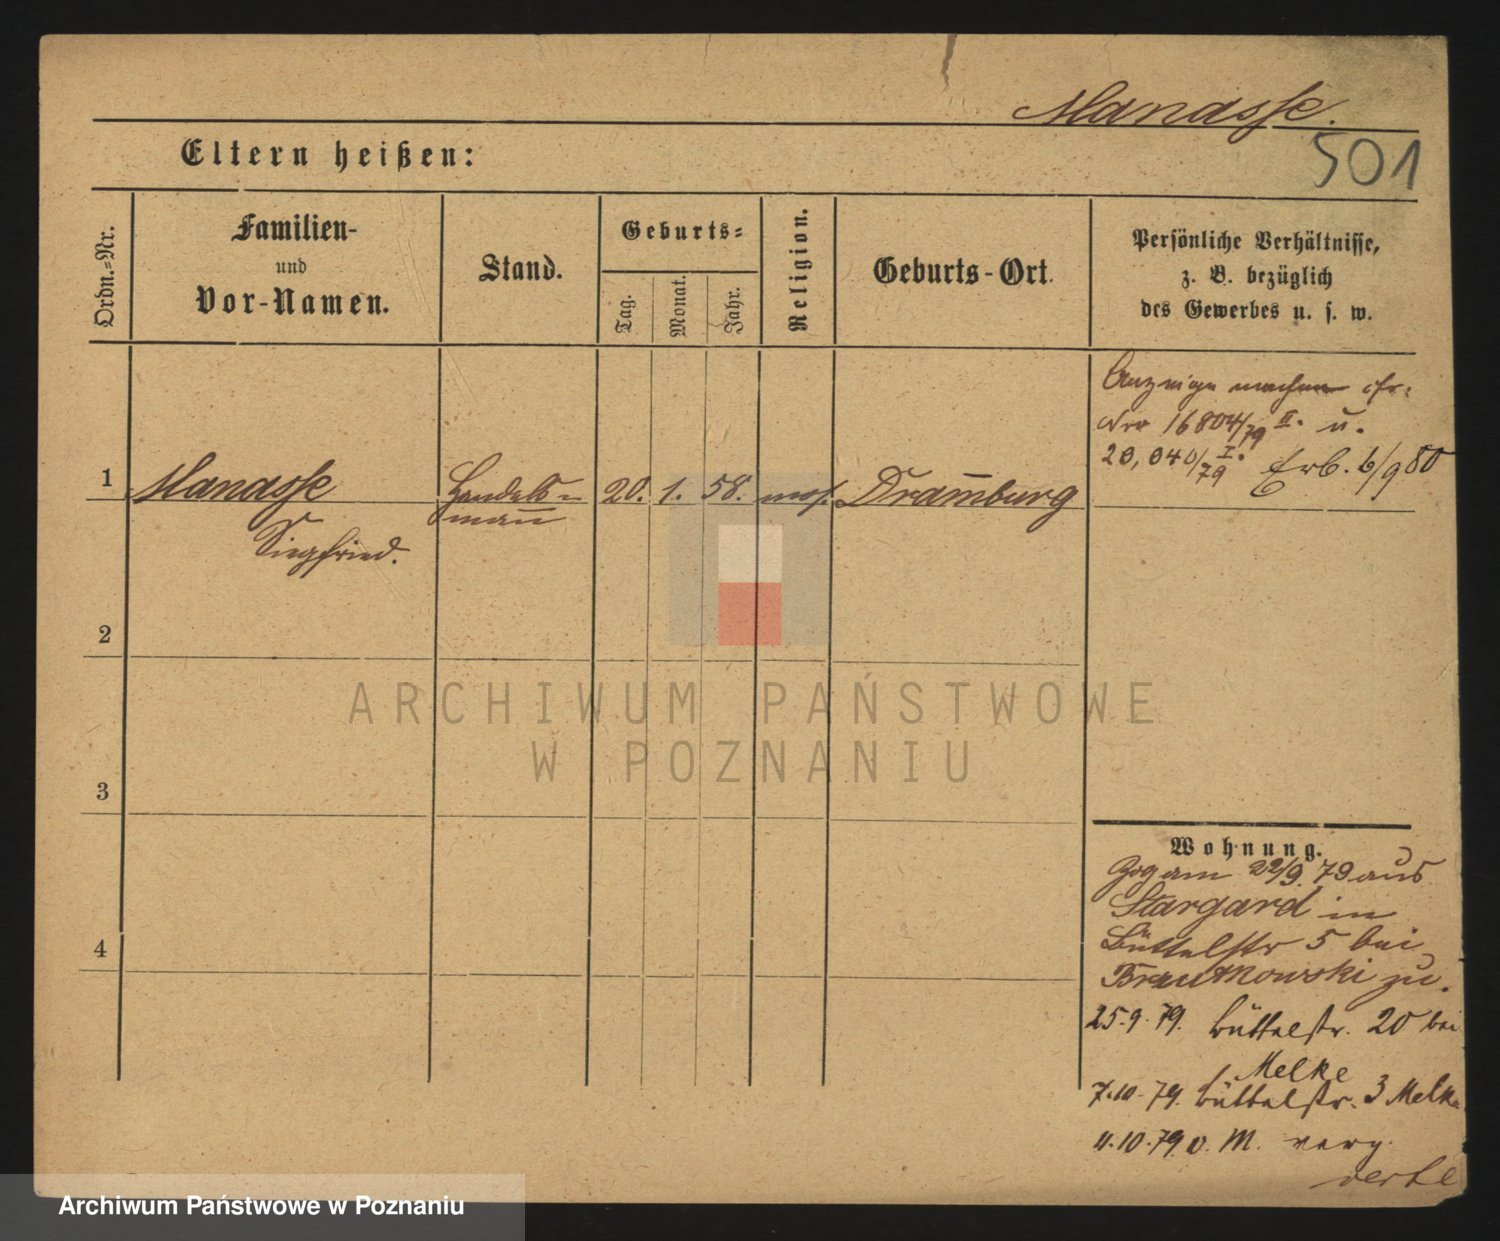 Manasse.
501
Eltern heißen:
Ordn.=Nr.
Familien-
und
Vor-Namen.
Stand.
Geburts=
Tag.
Monat.
Jahr.
Religion.
Geburts-Ort.
Persönliche Verhältnisse,
z. B. bezüglich
des Gewerbes u. s. w.
Anzeige machen
16804/79 II. u.
20,040/79 I. Erb. 6/9 80
1
Manasse
Siegfried.
Handels=
mann
20. 1. 58. mos. Dramburg
2
3
4
ARCHIWUM PAŃSTWOWE
W POZNANIU
Wohnung.
Zog am 22/9. 79 aus
Stargard in
Büttelstr 5 bei
zu.
25.9.79. Büttelstr. 20 bei
Melke
7.10.79. Büttelstr. 3 Melke
11.10.79 v. M. verz.
Archiwum Państwowe w Poznaniu